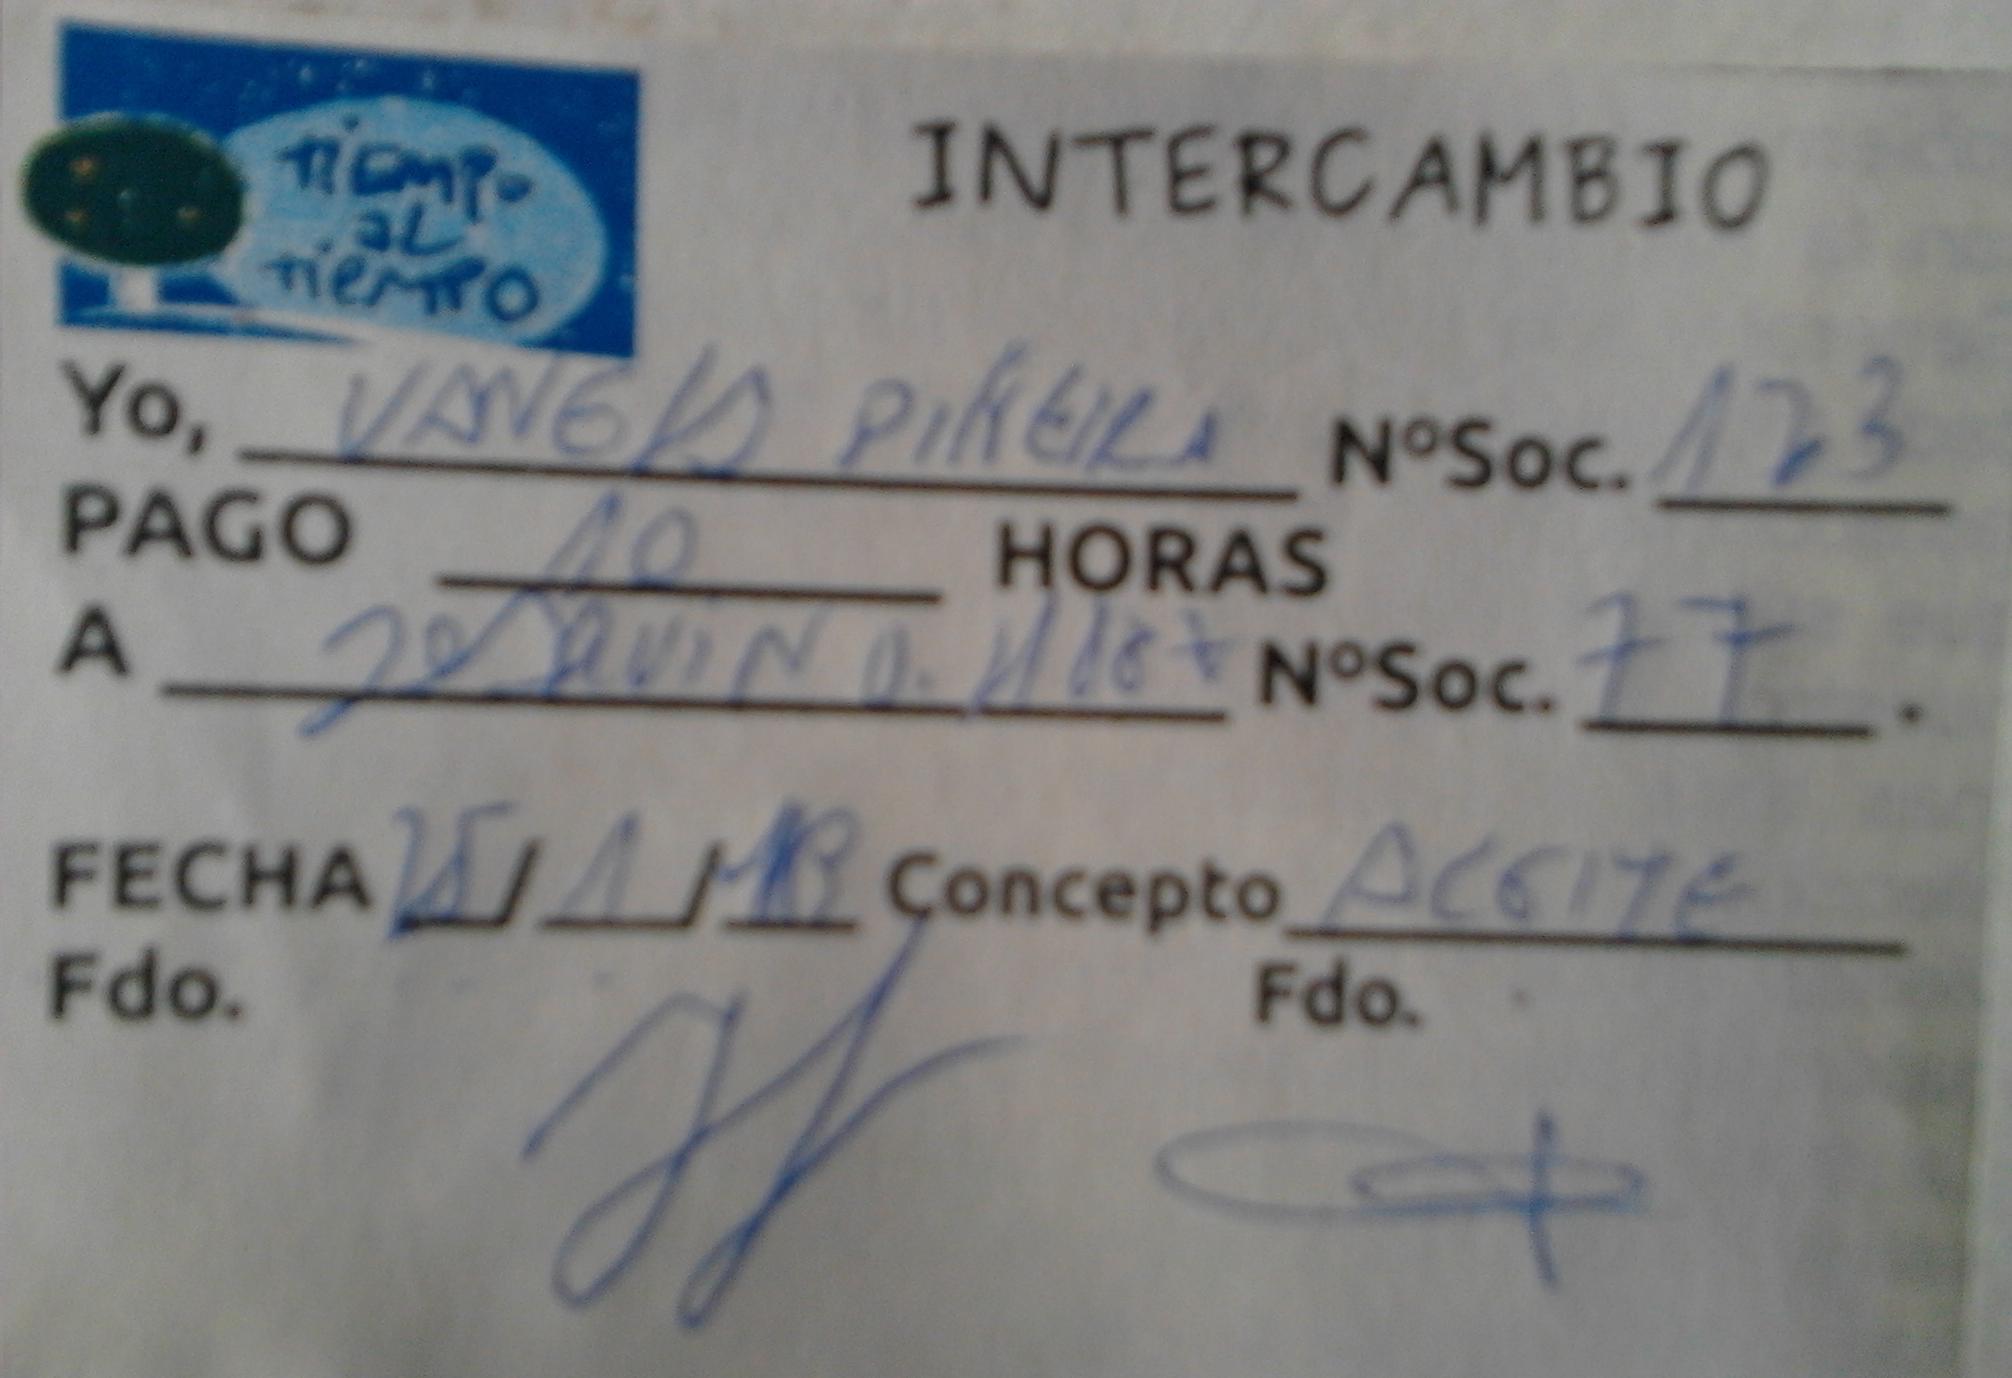 TiEMPo
aL
TiEMPO
INTERCAMBIO
Yo, VANESA PIÑEIRA NºSoc. 123
PAGO 10 HORAS
A JOAQUIN D. NºSoc. 77.
FECHA 25/1/13 Concepto ACEITE
Fdo. Fdo.